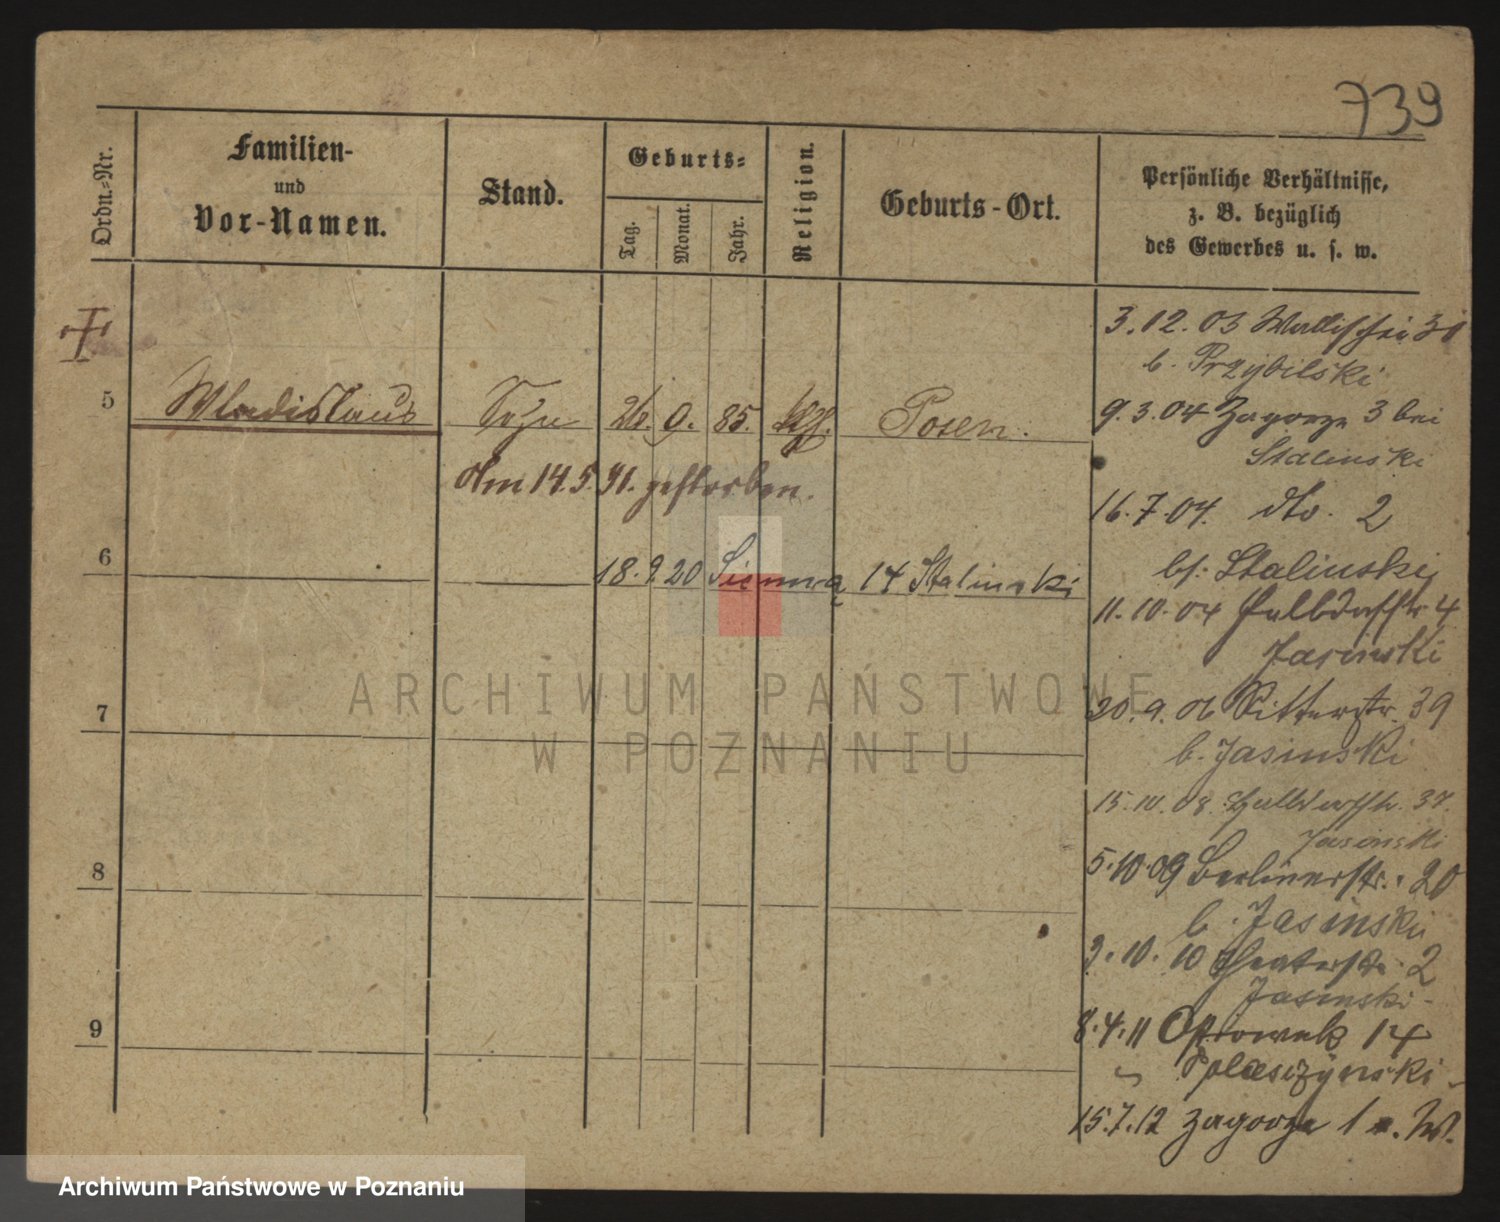 739
Ordn.-Nr.
Familien-
und
Vor-Namen.
Stand.
Geburts-
Tag.
Monat.
Jahr.
Religion.
Geburts-Ort.
Persönliche Verhältnisse,
z. B. bezüglich
des Gewerbes u. s. w.
5
Wladislaus Sohn 26. 9. 85. kth. Posen.
Am 14.5.91. gestorben.
6
18. 9. 20 Sienna 14 Stalinski
7
8
9
3.12.03 Wallischei 31
b. Przybilski
9.3.04 Zagorze 3 bei
Stalinski
16.7.04. dto. 2
bs: Stalinski
11.10.04 Halbdorfstr 4
Jasinski
20.9.06 Ritterstr. 39
b. Jasinski
15.10.08. Halbdorfstr. 37.
Jasinski
5.10.09 Berlinerstr. 20
b. Jasinski
3.10.10 Theaterstr. 2
Jasinski
8.4.11 Ostrowek 14
Splasczynski
15.7.12 Zagorze 1
ARCHIWUM PAŃSTWOWE
W POZNANIU
Archiwum Państwowe w Poznaniu